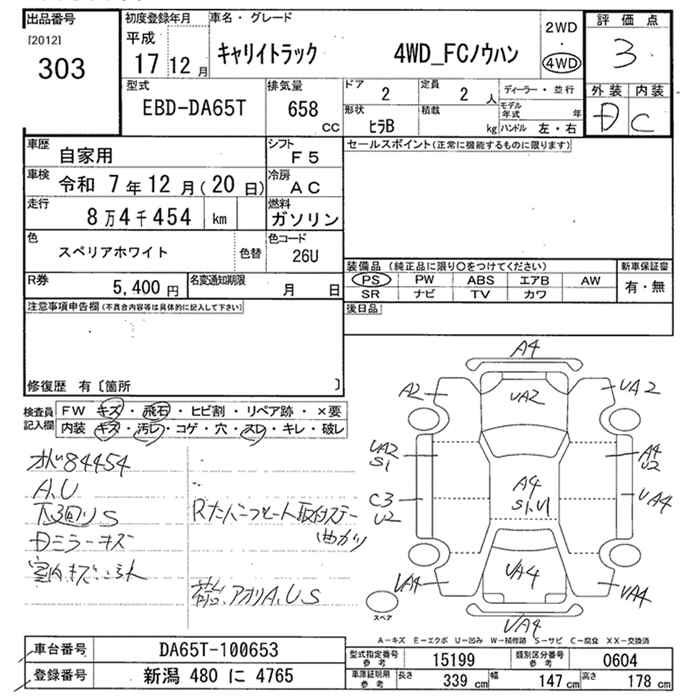 出品番号 初度登録年月 車名・グレード 評価点
[2012] 303 平成 17 12月 キャリイトラック 4WD_FCノウハン 2WD ・ 4WD 3
型式 EBD-DA65T 排気量 658 cc ドア 2 定員 2 人 ディーラー・並行 外装 内装
形状 ヒラB 積載 kg モデル年式 年 ハンドル 左・右 D C
車歴 自家用 シフト F5 セールスポイント(正常に機能するものに限ります)
車検 令和 7年 12月(20日) 冷房 AC
走行 8万4千454 km 燃料 ガソリン
色 スペリアホワイト 色替 色コード 26U
R券 5,400円 名変通知期限 月 日
装備品 (純正品に限り○をつけてください) 新車保証書
PS PW ABS エアB AW 有・無
SR ナビ TV カワ
注意事項申告欄(不具合内容等は具体的に記入して下さい) 後日品
修復歴 有〔箇所 〕
検査員記入欄 FW キズ・飛石・ヒビ割・リペア跡・×要
内装 キズ・汚レ・コゲ・穴・スレ・キレ・破レ
84454
A,U
下回りS
Dミラーキズ
室内キズ
取付ステー
曲がり
荷台、アオリA,U,S
A4
A2 UA2 UA2
UA2 S1 A4 U2
C3 U2 A4 S1,U1 UA4
UA4 UA4 UA4
スペア UA4
A-キズ E-エクボ U-凹み W-補修跡 S-サビ C-腐食 XX-交換済
車台番号 DA65T-100653 型式指定番号 参考 15199 類別区分番号 参考 0604
登録番号 新潟 480 に 4765 車庫証明用 参考 長さ 339 cm 幅 147 cm 高さ 178 cm